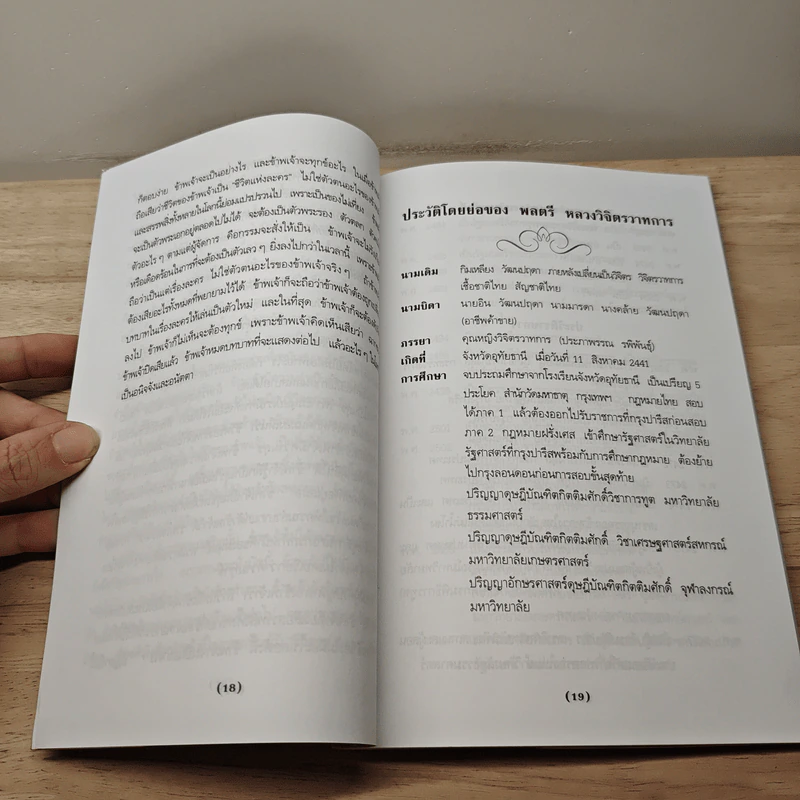 ก็ตอบง่าย ข้าพเจ้าจะเป็นอย่างไร และข้าพเจ้าจะทุกข์อะไร ในเมื่อข้าพเจ้า
ถือเสียว่าชีวิตของข้าพเจ้าเป็น "ชีวิตแห่งละคร" ไม่ใช่ตัวตนอะไรของข้าพเจ้า
และสรรพสิ่งทั้งหลายในโลกนี้ย่อมแปรปรวนไป เพราะเป็นของไม่เที่ยง
จะเป็นตัวพระเอกอยู่ตลอดไปไม่ได้ จะต้องเป็นตัวพระรอง ตัวตลก
ตัวอะไร ๆ ตามแต่ผู้จัดการ คือกรรมจะสั่งให้เป็น ข้าพเจ้าจะไม่
หรือเดือดร้อนในการที่จะต้องเป็นตัวเลว ๆ ยิ่งลงไปกว่าในเวลานี้
ถือว่าเป็นแต่เรื่องละคร ไม่ใช่ตัวตนอะไรของข้าพเจ้าจริง ๆ
ต้องเสียอะไรทั้งหมดที่พยายามไว้ได้ ข้าพเจ้าก็จะถือว่าข้าพเจ้าต้อง
บทบาทในเรื่องละครให้เล่นเป็นตัวใหม่ และในที่สุด ข้าพเจ้าก็จะต้อง
ลงไป ข้าพเจ้าก็ไม่เห็นจะต้องทุกข์ เพราะข้าพเจ้าคิดเห็นเสียว่า
ข้าพเจ้าปิดเสียแล้ว ข้าพเจ้าหมดบทบาทที่จะแสดงต่อไป แล้วอะไร ๆ
เป็นอนิจจังและอนัตตา
(18)
ประวัติโดยย่อของ พลตรี หลวงวิจิตรวาทการ
นามเดิม กิมเหลียง วัฒนปฤดา ภายหลังเปลี่ยนเป็นวิจิตร วิจิตรวาทการ
เชื้อชาติไทย สัญชาติไทย
นามบิดา นายอิน วัฒนปฤดา นามมารดา นางคล้าย วัฒนปฤดา
(อาชีพค้าขาย)
ภรรยา คุณหญิงวิจิตรวาทการ (ประภาพรรณ รพิพันธุ์)
เกิดที่ จังหวัดอุทัยธานี เมื่อวันที่ 11 สิงหาคม 2441
การศึกษา จบประถมศึกษาจากโรงเรียนจังหวัดอุทัยธานี เป็นเปรียญ 5
ประโยค สำนักวัดมหาธาตุ กรุงเทพฯ กฎหมายไทย สอบ
ได้ภาค 1 แล้วต้องออกไปรับราชการที่กรุงปารีสก่อนสอบ
ภาค 2 กฎหมายฝรั่งเศส เข้าศึกษารัฐศาสตร์ในวิทยาลัย
รัฐศาสตร์ที่กรุงปารีสพร้อมกับการศึกษากฎหมาย ต้องย้าย
ไปกรุงลอนดอนก่อนการสอบขั้นสุดท้าย
ปริญญาดุษฎีบัณฑิตกิตติมศักดิ์วิชาการทูต มหาวิทยาลัย
ธรรมศาสตร์
ปริญญาดุษฎีบัณฑิตกิตติมศักดิ์ วิชาเศรษฐศาสตร์สหกรณ์
มหาวิทยาลัยเกษตรศาสตร์
ปริญญาอักษรศาสตร์ดุษฎีบัณฑิตกิตติมศักดิ์ จุฬาลงกรณ์
มหาวิทยาลัย
(19)